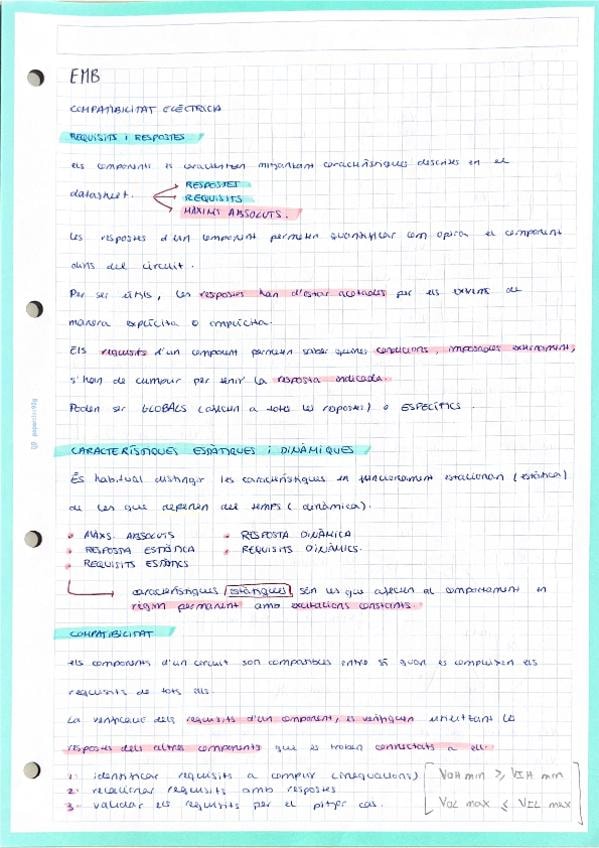 EMB
COMPATIBILITAT ELÈCTRICA
REQUISITS I RESPOSTES
els components es caracteritzen mitjançant característiques descrites en el
datasheet.
RESPOSTES
REQUISITS
MÀXIMS ABSOLUTS.
Les respostes d'un component permeten quantificar com opera el component
dins del circuit.
Per ser útils, les respostes han d'estar acotades per els extrems de
manera explícita o implícita.
Els requisits d'un component permeten saber quines condicions, imposades externament,
s'han de complir per tenir la resposta indicada.
Poden ser GLOBALS (afecten a totes les respostes) o ESPECÍFICS.
CARACTERÍSTIQUES ESTÀTIQUES I DINÀMIQUES
És habitual distingir les característiques en funcionament estacionari (estàtica)
de les que depenen del temps (dinàmica).
• MÀXS. ABSOLUTS
• RESPOSTA ESTÀTICA
• REQUISITS ESTÀTICS
• RESPOSTA DINÀMICA
• REQUISITS DINÀMICS.
característiques estàtiques són les que afecten al comportament en
règim permanent amb excitacions constants.
COMPATIBILITAT
els components d'un circuit son compatibles entre sí quan es compleixen els
requisits de tots ells.
La verificació dels requisits d'un component, es verifiquen utilitzant les
respostes dels altres components que es troben connectats a ell.
1. identificar requisits a complir (inequacions)
2. relacionar requisits amb respostes
3. validar els requisits per el pitjor cas.
VOH min ≥ VIH min
VOL max ≤ VIL max